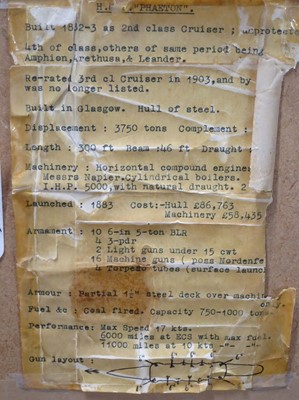 H.M.S. "PHAETON".
Built 1882-3 as 2nd class Cruiser ; unprotecte
4th of class, others of same period being
Amphion, Arethusa, & Leander.
Re-rated 3rd cl Cruiser in 1903, and by
was no longer listed.
Built in Glasgow. Hull of steel.
Displacement : 3750 tons Complement :
Length : 300 ft Beam :46 ft Draught :
Machinery : Horizontal compound engine
Messrs Napier. Cylindrical boilers.
I.H.P. 5000, with natural draught. 2
Launched : 1883 Cost:-Hull £86,763
Machinery £58,435
Armament : 10 6-in 5-ton BLR
4 3-pdr
2 Light guns under 15 cwt
16 Machine guns ( poss Mordenfe
4 Torpedo tubes (surface launc
Armour : Partial 1½" steel deck over machin
ery.
Fuel &c : Coal fired. Capacity 750-1000 tons
Performance: Max Speed 17 kts.
6000 miles at ECS with max fuel.
11000 miles at 10 kts -"- -"-
Gun layout :